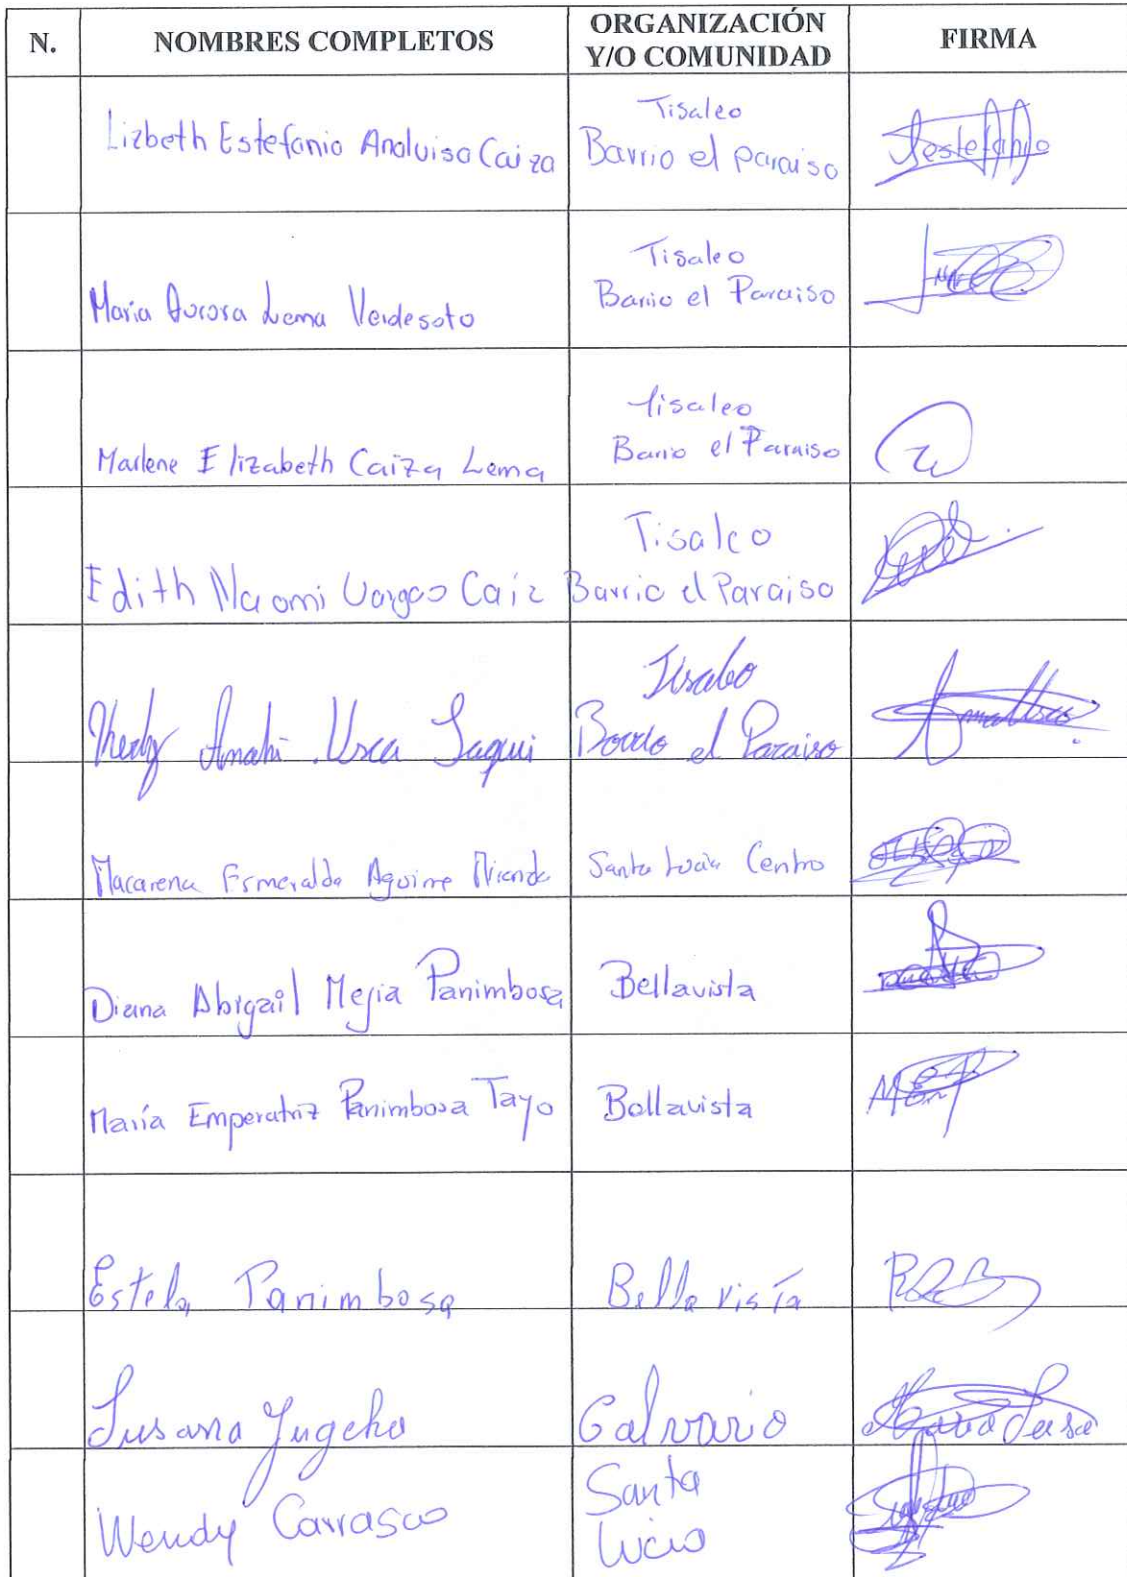 N.
NOMBRES COMPLETOS
ORGANIZACIÓN
Y/O COMUNIDAD
FIRMA
Lizbeth Estefania Analuisa Caiza
Tisaleo
Barrio el paraiso
Maria Aurora Lema Verdesoto
Tisaleo
Barrio el Paraiso
Marlene Elizabeth Caiza Lema
Tisaleo
Barrio el Paraiso
Edith Naomi Vargas Caiz
Tisaleo
Barrio el Paraiso
Anahi Usca
Tisaleo
Barrio el Paraiso
Macarena Esmeralda Aguirre
Santa Lucia Centro
Diana Abigail Mejia Panimbosa
Bellavista
María Emperatriz Panimbosa Tayo
Bellavista
Estela Panimbosa
Bella vista
Susana
Calvario
Wendy Carrasco
Santa
Lucia